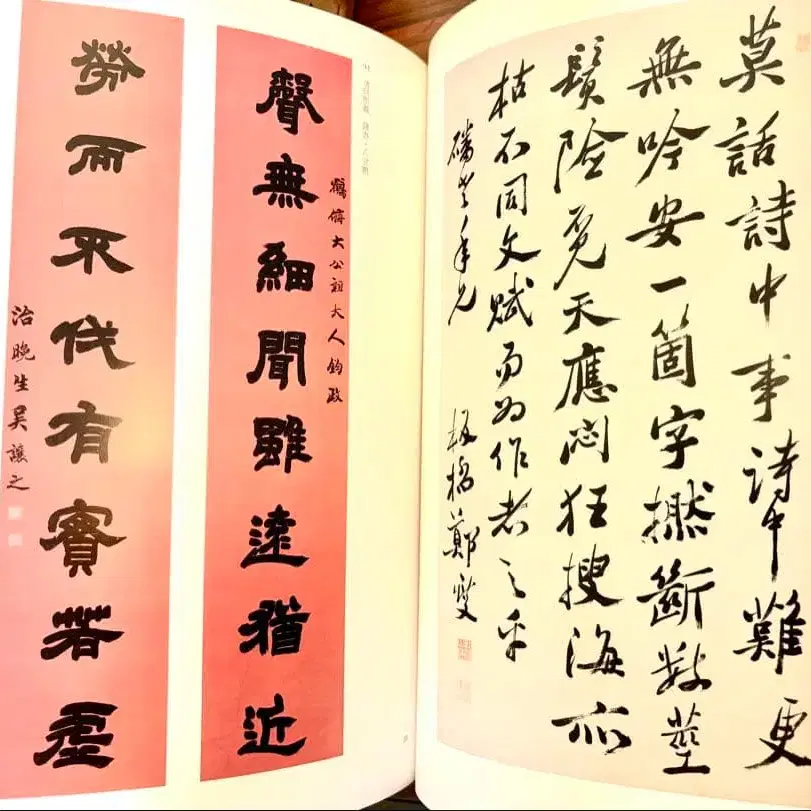 莫話詩中事詩中難更
無吟安一箇字撚斷數莖
鬚險覓天應悶狂搜海亦
枯不同文賦易為作者之乎
磻老年兄 板橋鄭燮
鶴儕大公祖大人鈞政
聲無細聞雖遠猶近
勞而不伐有實若虛
治晚生吳讓之